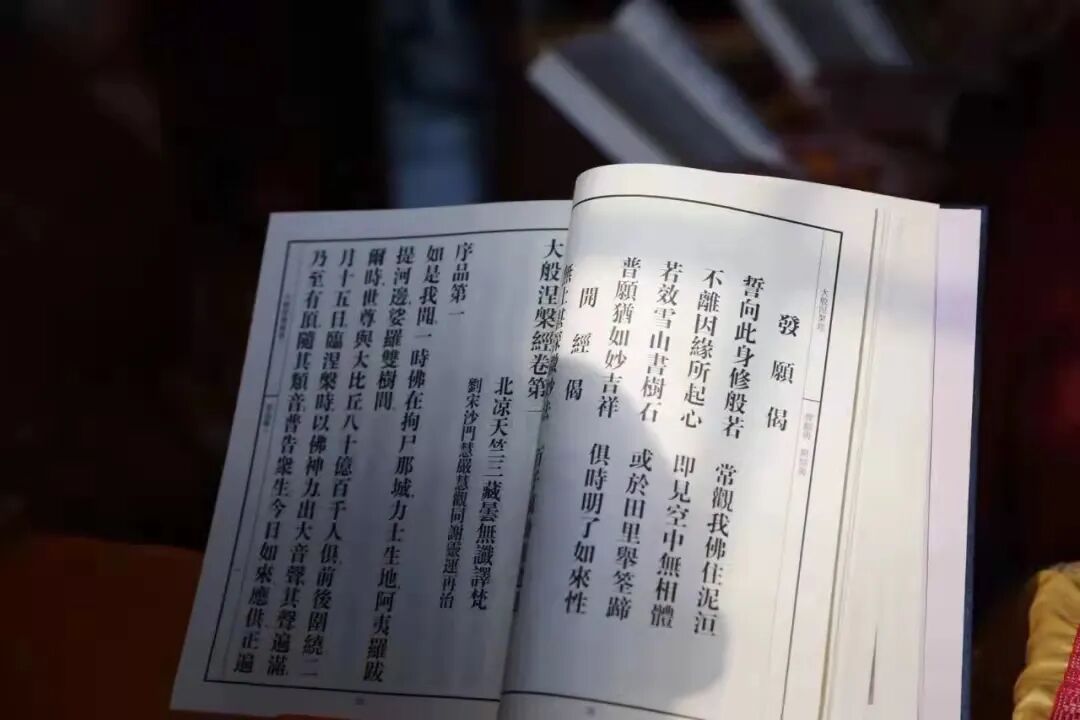 大般涅槃經
發願偈
誓向此身修般若　常觀我佛住泥洹
不離因緣所起心　即見空中無相體
若效雪山書樹石　或於田里舉筌蹄
普願猶如妙吉祥　俱時明了如來性
開經偈
大般涅槃經卷第一
北凉天竺三藏曇無讖譯梵
劉宋沙門慧嚴慧觀同謝靈運再治
序品第一
如是我聞一時佛在拘尸那城力士生地阿夷羅跋
提河邊娑羅雙樹間
爾時世尊與大比丘八十億百千人俱前後圍繞二
月十五日臨涅槃時以佛神力出大音聲其聲遍滿
乃至有頂隨其類音普告衆生今日如來應供正遍